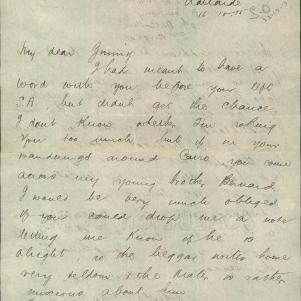 Adelaide
16.10.15
My dear Jimmy
I had meant to have a
word with you before you left
S.A. but didn't get the chance.
I dont know whether I'm asking
you too much but if in your
wanderings around Cairo you come
across my young brother Bernard
I would be very much obliged
if you could drop me a note
letting me know if he is
alright as the beggar writes home
very seldom & the Mater is rather
anxious about him